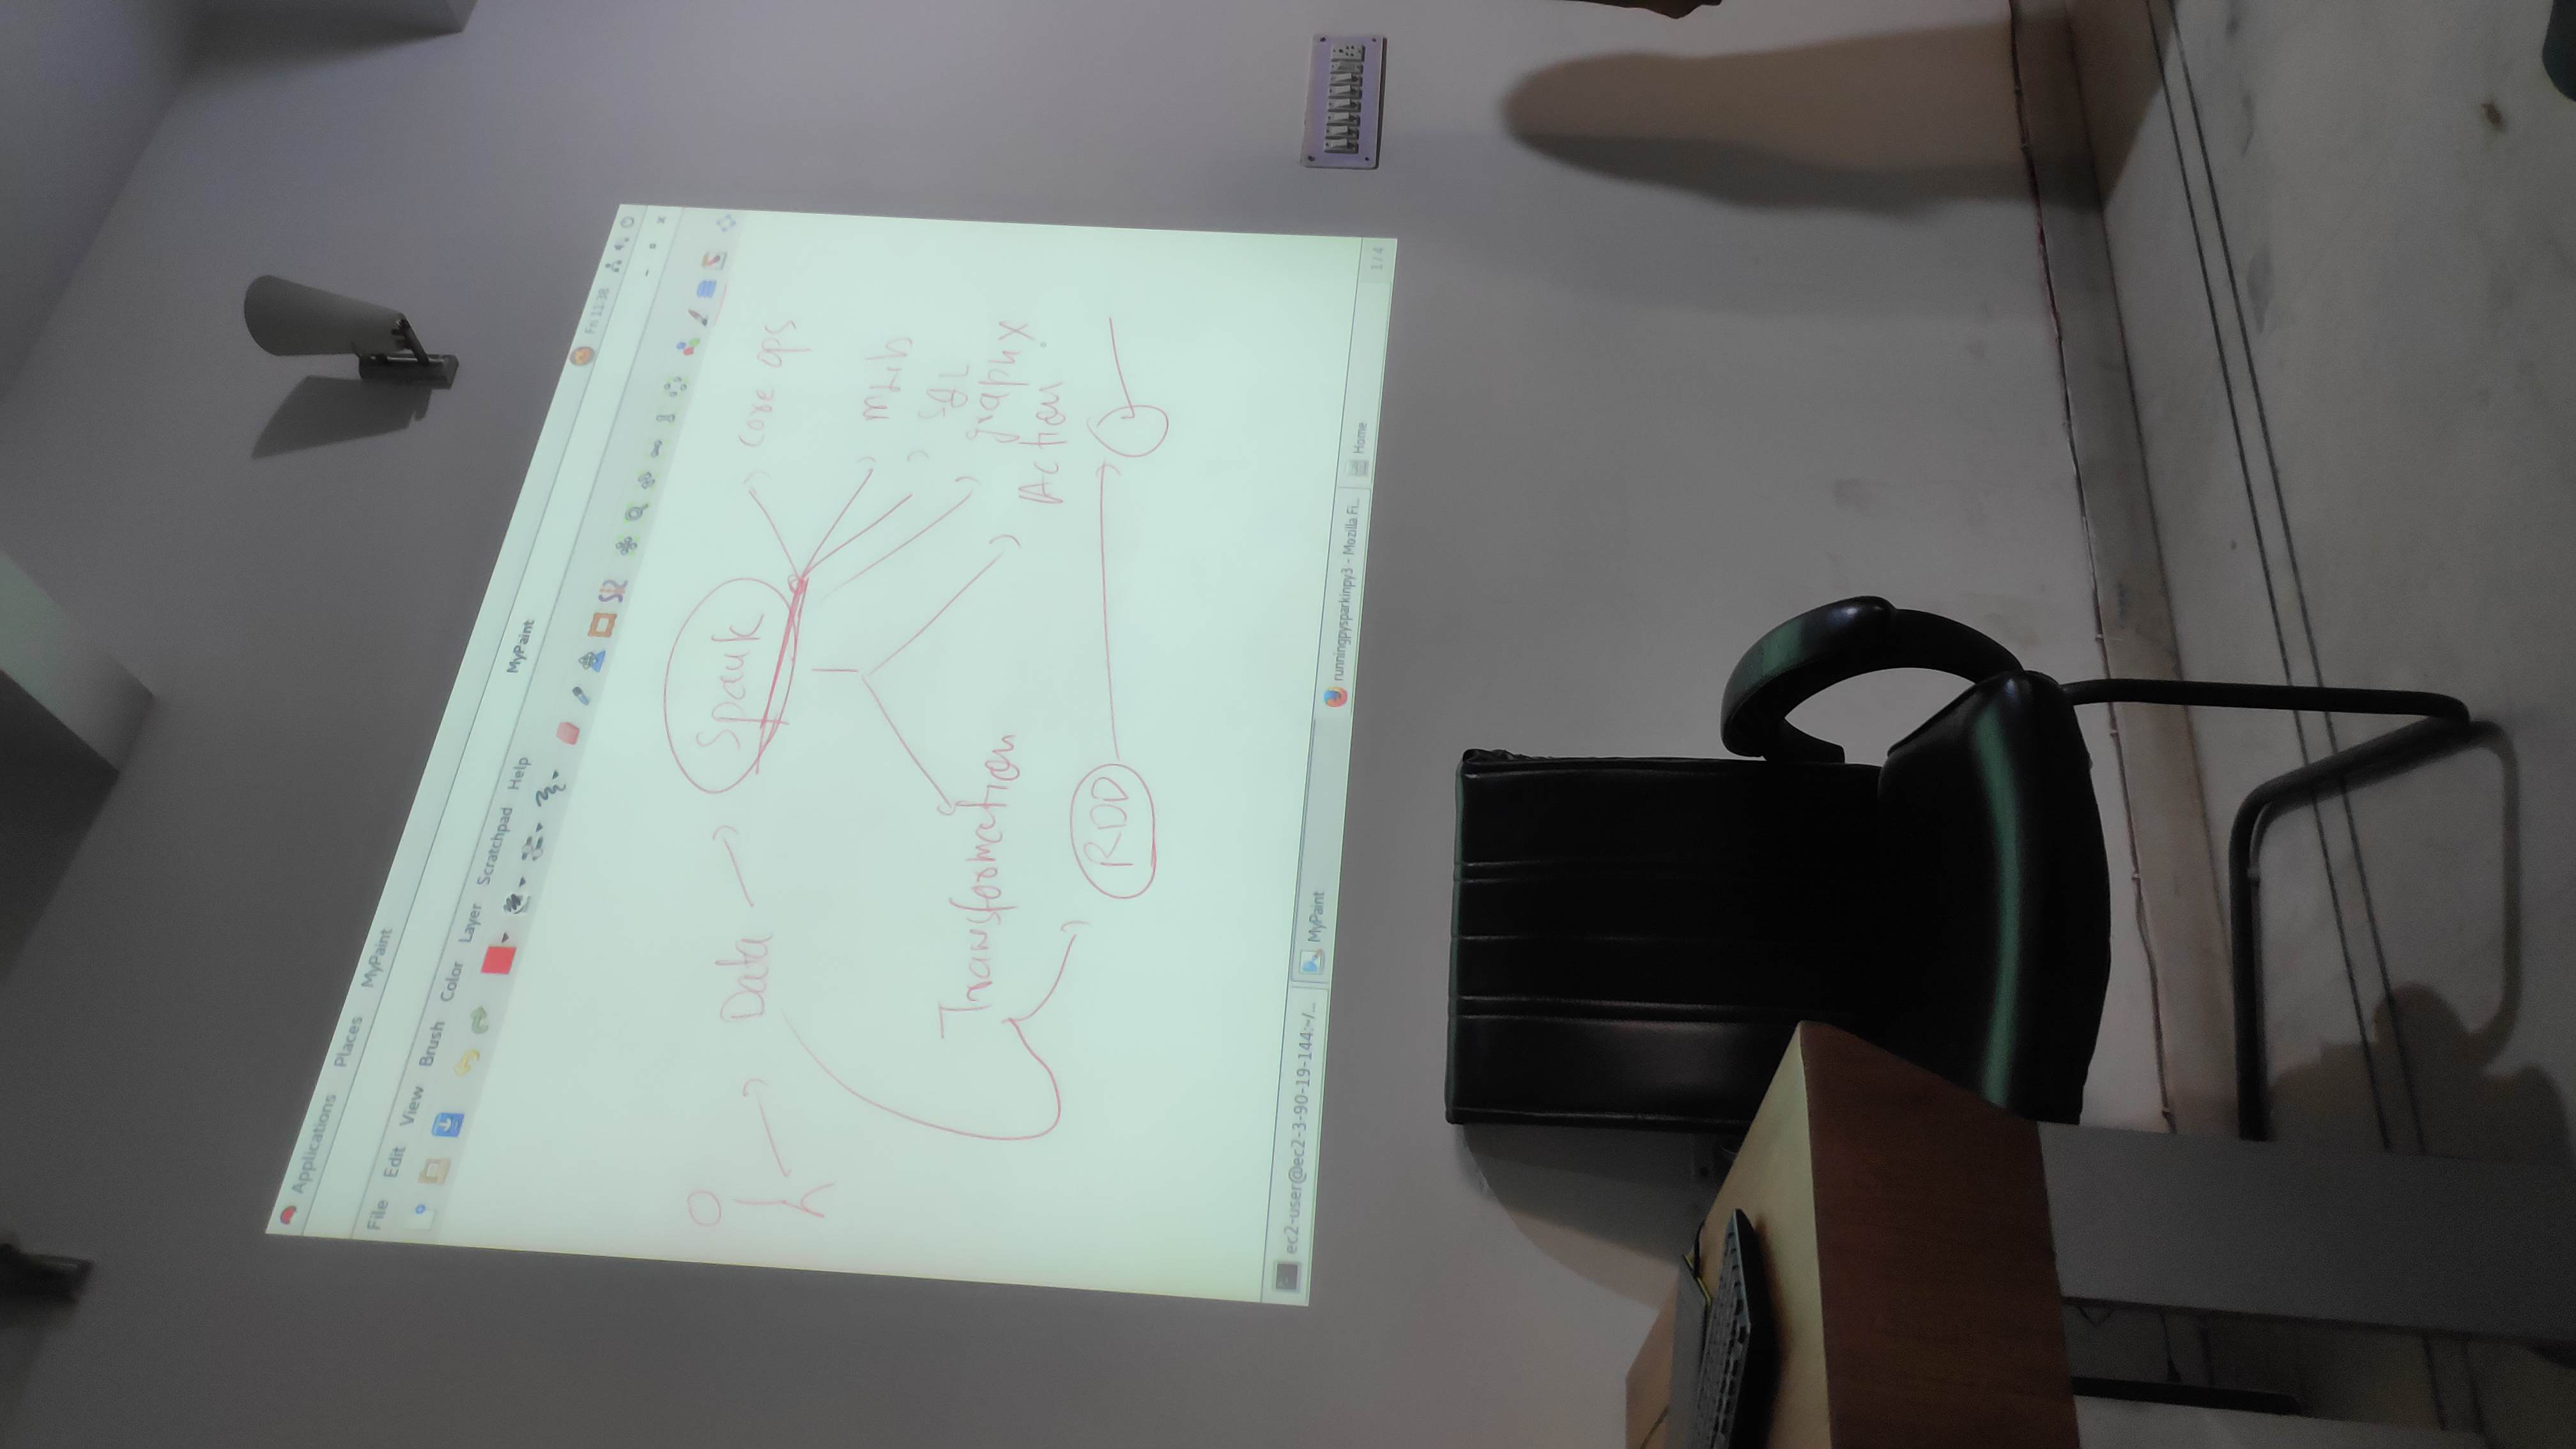 Applications Places MyPaint
MyPaint
Fri 11:38
File Edit View Brush Color Layer Scratchpad Help
Data
Spark
core ops
MLib
SQL
graphx
Transformation
Action
RDD
ec2-user@ec2-3-90-19-144:~/...
MyPaint
runningpysparkinpy3 - Mozilla Fi...
Home
1 / 4